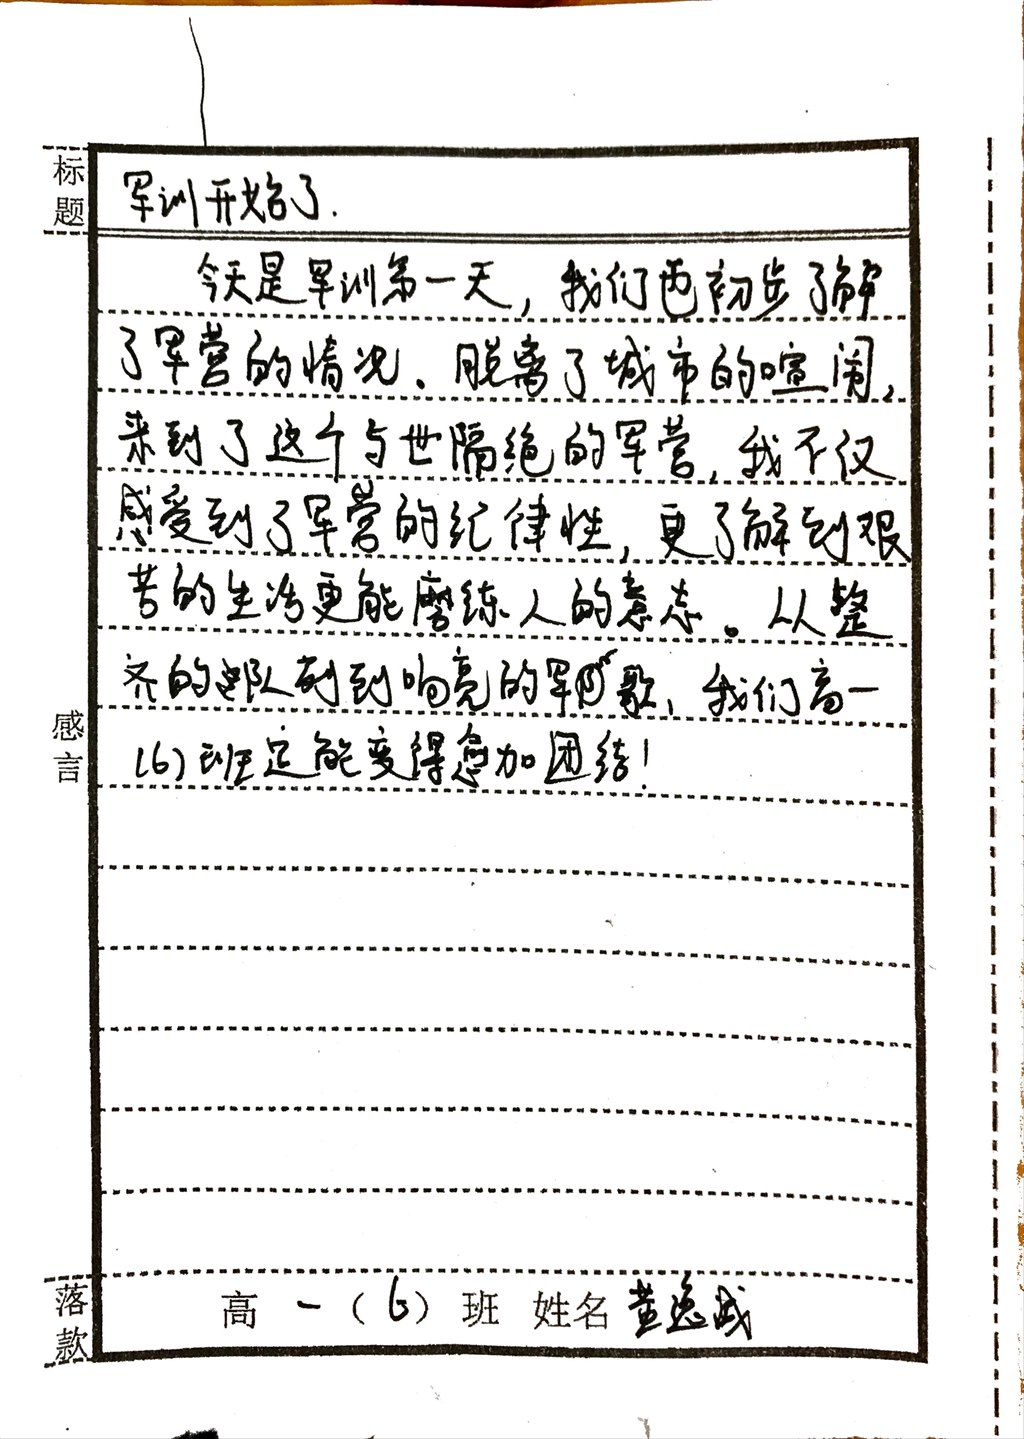 标题
军训开始了.
今天是军训第一天,我们也初步了解
了军营的情况、脱离了城市的喧闹,
来到了这个与世隔绝的军营,我不仅
感受到了军营的纪律性,更了解到艰
苦的生活更能磨练人的意志。从整
齐的部队列到响亮的军歌,我们高一
(6)班定能变得愈加团结!
感言
落款
高一(6)班 姓名 黄逸成